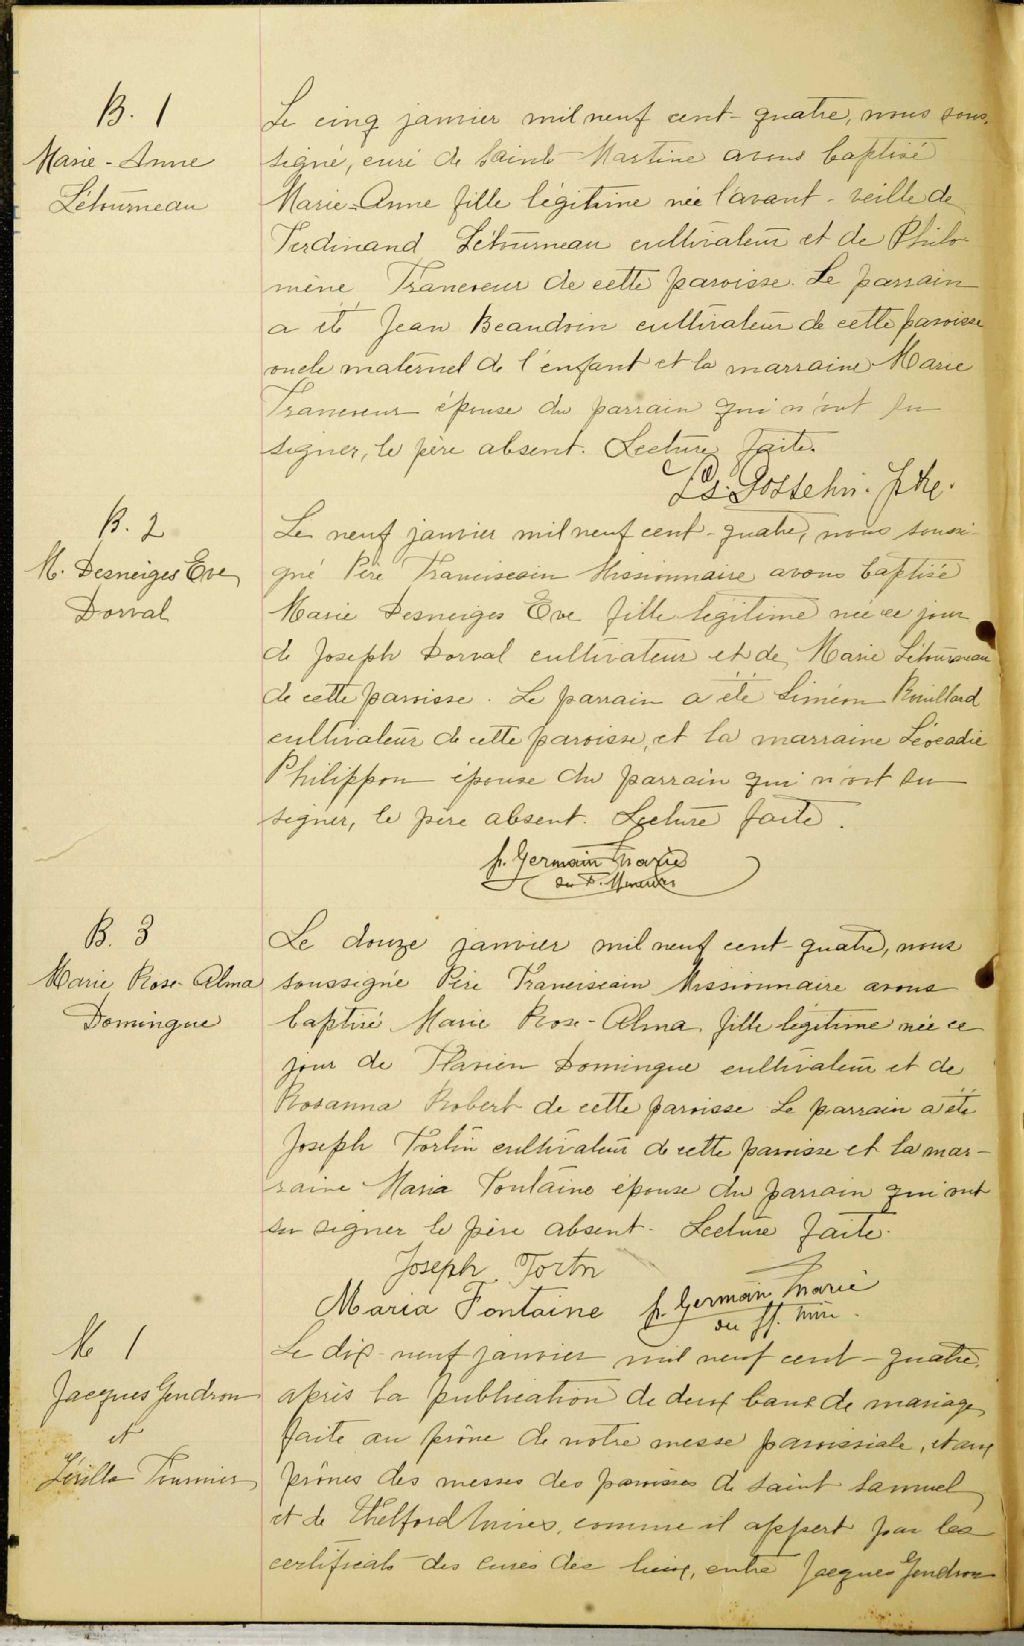 B. 1
Marie-Anne
Létourneau
Le cinq janvier mil neuf cent-quatre, nous sous-
signé, curé de Sainte-Martine avons baptisé
Marie-Anne fille légitime née l'avant-veille de
Ferdinand Létourneau cultivateur et de Philo-
mène Francoeur de cette paroisse. Le parrain
a été Jean Beaudoin cultivateur de cette paroisse
oncle maternel de l'enfant et la marraine Marie
Francoeur épouse du parrain qui n'ont su
signer, le père absent. Lecture faite.
Ls. Gosselin. ptre.
B. 2
M. Desneiges Eve
Dorval
Le neuf janvier mil neuf cent-quatre, nous soussi-
gné Père Franciscain Missionnaire avons baptisé
Marie Desneiges Eve fille légitime née ce jour
de Joseph Dorval cultivateur et de Marie Létourneau
de cette paroisse. Le parrain a été Siméon Rouillard
cultivateur de cette paroisse, et la marraine Léocadie
Philippon épouse du parrain qui n'ont su
signer, le père absent. Lecture faite.
fr. Germain Marie
des F. Mineurs
B. 3
Marie Rose-Alma
Domingue
Le douze janvier mil neuf cent-quatre, nous
soussigné Père Franciscain Missionnaire avons
baptisé Marie Rose-Alma, fille légitime née ce
jour de Flavien Domingue cultivateur et de
Rosanna Robert de cette paroisse Le parrain a été
Joseph Fortin cultivateur de cette paroisse et la mar-
raine Maria Fontaine épouse du parrain qui ont
su signer le père absent. Lecture faite.
Joseph Fortin
Maria Fontaine fr. Germain Marie
des ff. min.
M 1
Jacques Gendron
et
Fournier
Le dix-neuf janvier mil neuf cent-quatre,
après la publication de deux bans de mariage
faite au prône de notre messe paroissiale, et aux
prônes des messes des paroisses de Saint Samuel
et de Thetford Mines, comme il appert par les
certificats des curés des lieux, entre Jacques Gendron